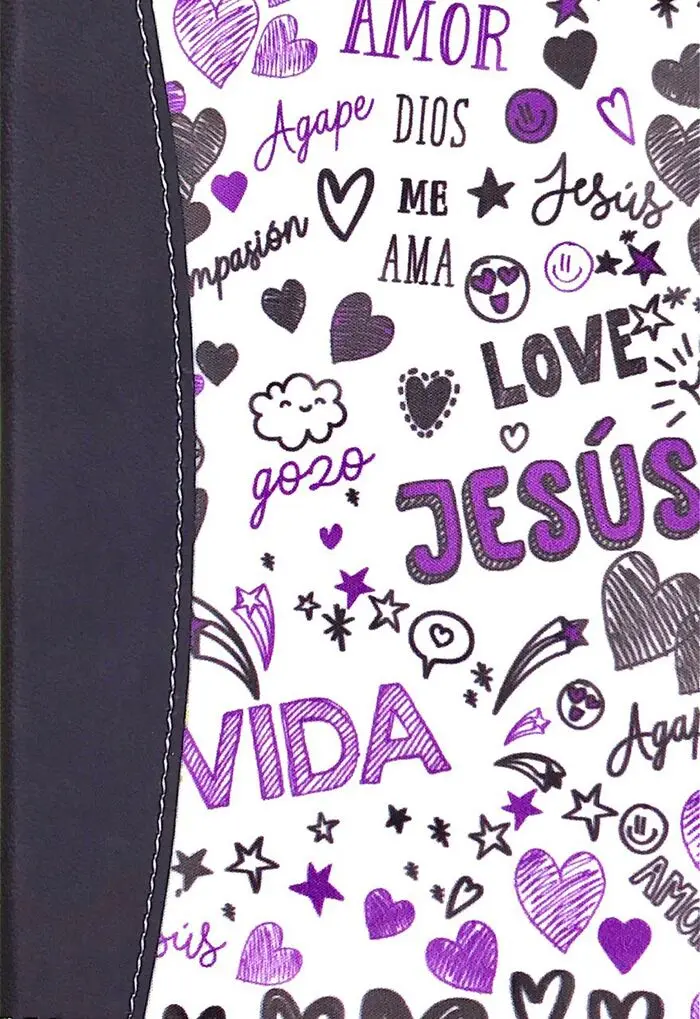 AMOR
Agape
DIOS
ME
AMA
Jesús
mpasión
LOVE
gozo
JESÚS
VIDA
Agap
AMO
ús